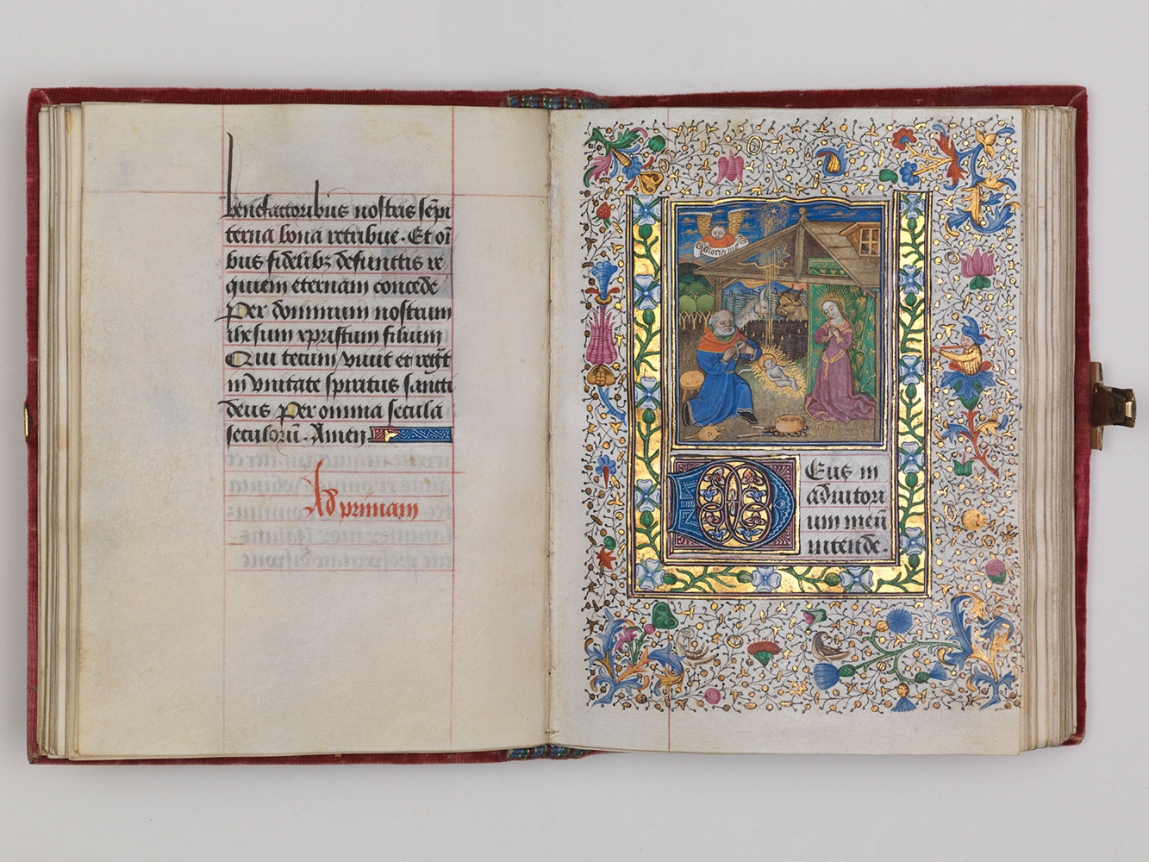 benefactoribus nostris sẽpi
terna bona retribue. Et oĩ
bus fidelibꝫ defunctis re
quiem eternam concede
Per dominum nostrum
ihesum xpristum filium
Qui tecum viuit et regñt
in vnitate spiritus sancti
deus Per omnia secula
seculorũ. Amen
Ad primam
Gloria in
DEus in
adiutori
um meũ
intende.